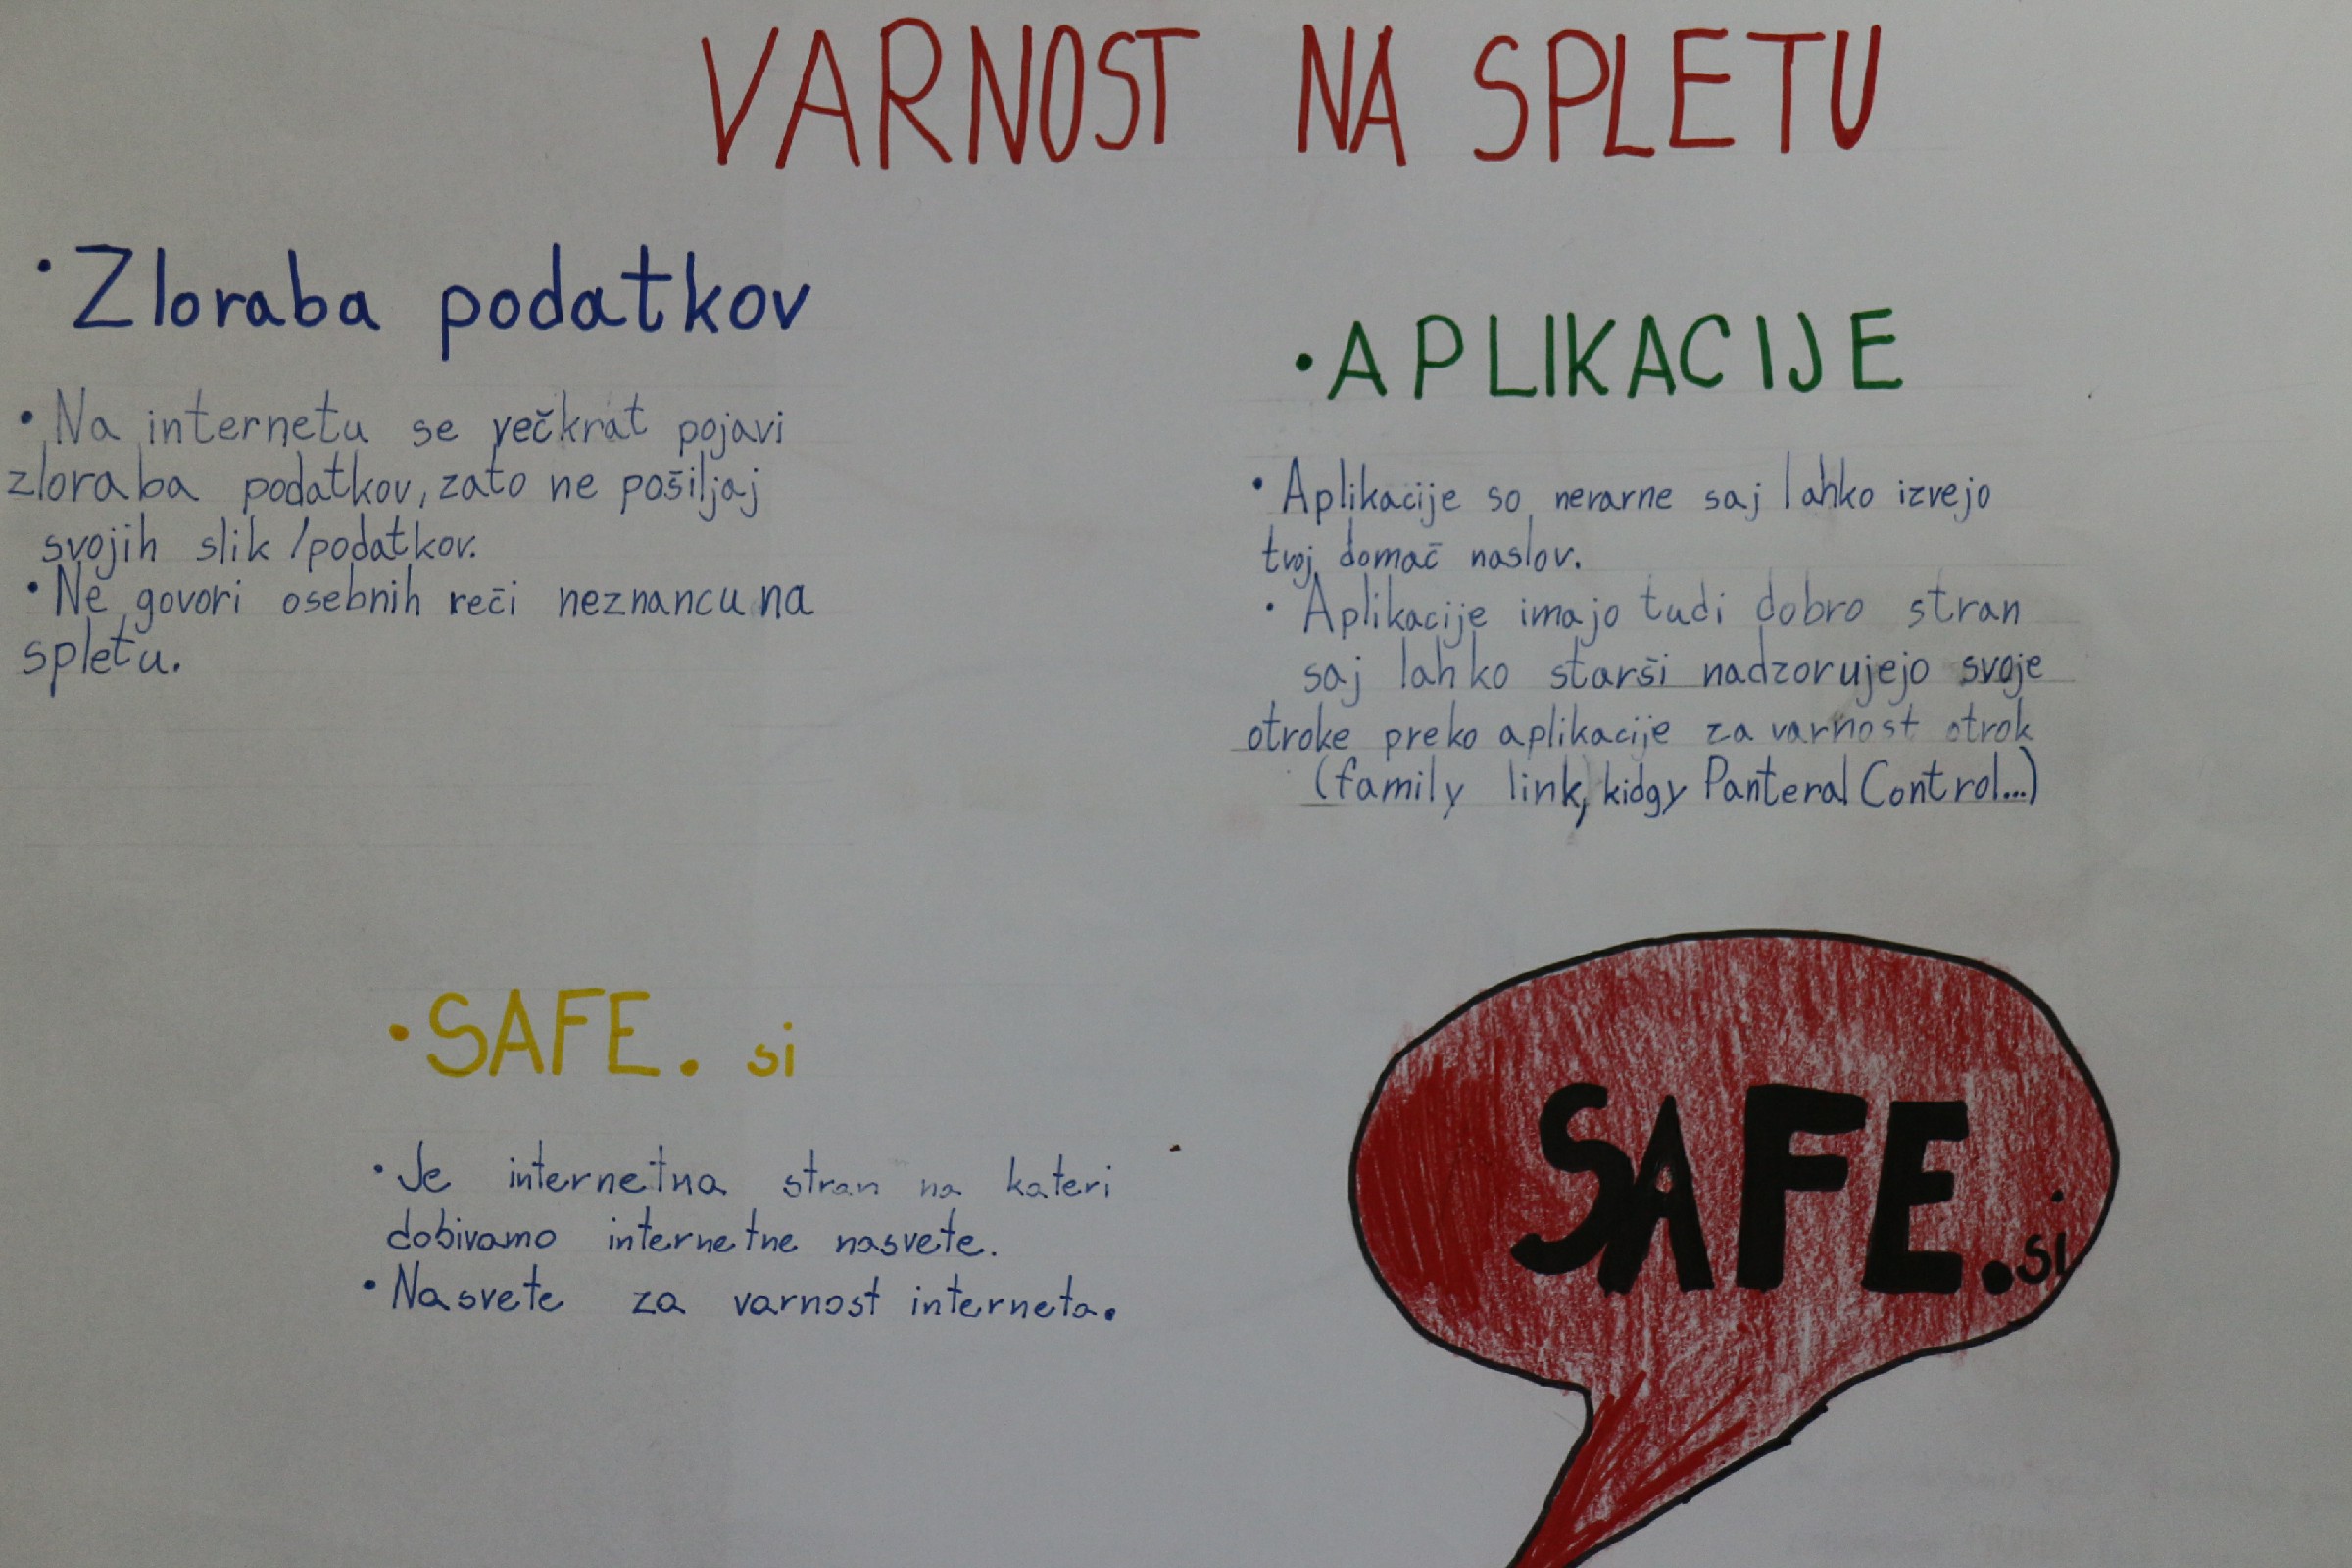 VARNOST NA SPLETU
• Zloraba podatkov
• Na internetu se večkrat pojavi
zloraba podatkov, zato ne pošiljaj
svojih slik /podatkov.
• Ne govori osebnih reči neznancu na
spletu.
• APLIKACIJE
• Aplikacije so nevarne saj lahko izvejo
tvoj domač naslov.
• Aplikacije imajo tudi dobro stran
saj lahko starši nadzorujejo svoje
otroke preko aplikacije za varnost otrok
(family link, kidgy Panteral Control...)
• SAFE. si
• Je internetna stran na kateri
dobivamo internetne nasvete.
• Nasvete za varnost interneta.
SAFE.si